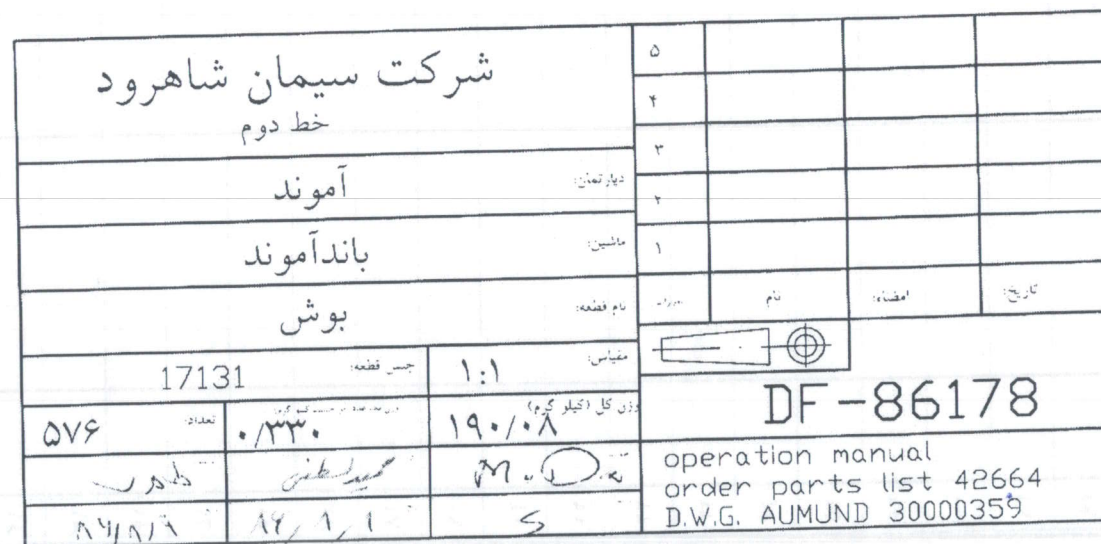 شرکت سیمان شاهرود
خط دوم
دپارتمان: آموند
ماشین: باندآموند
نام قطعه: بوش
مقیاس: ۱:۱
جنس قطعه: 17131
وزن کل (کیلو گرم) ۱۹۰/۰۸
۰/۳۳۰
تعداد: ۵۷۶
۵
۴
۳
۲
۱
نام
امضاء:
تاریخ:
DF-86178
operation manual
order parts list 42664
D.W.G. AUMUND 30000359